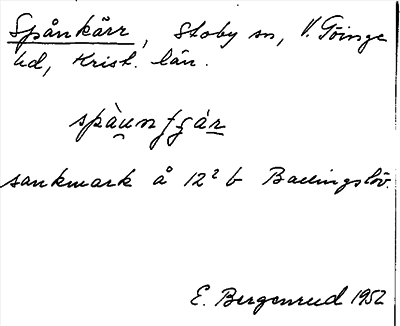 Spånkärr, Stoby sn, V. Göinge
hd, Krist. län.
spàu̯nʃgár
sankmark å 12² b Ballingslöv.
E. Bergenrud 1952